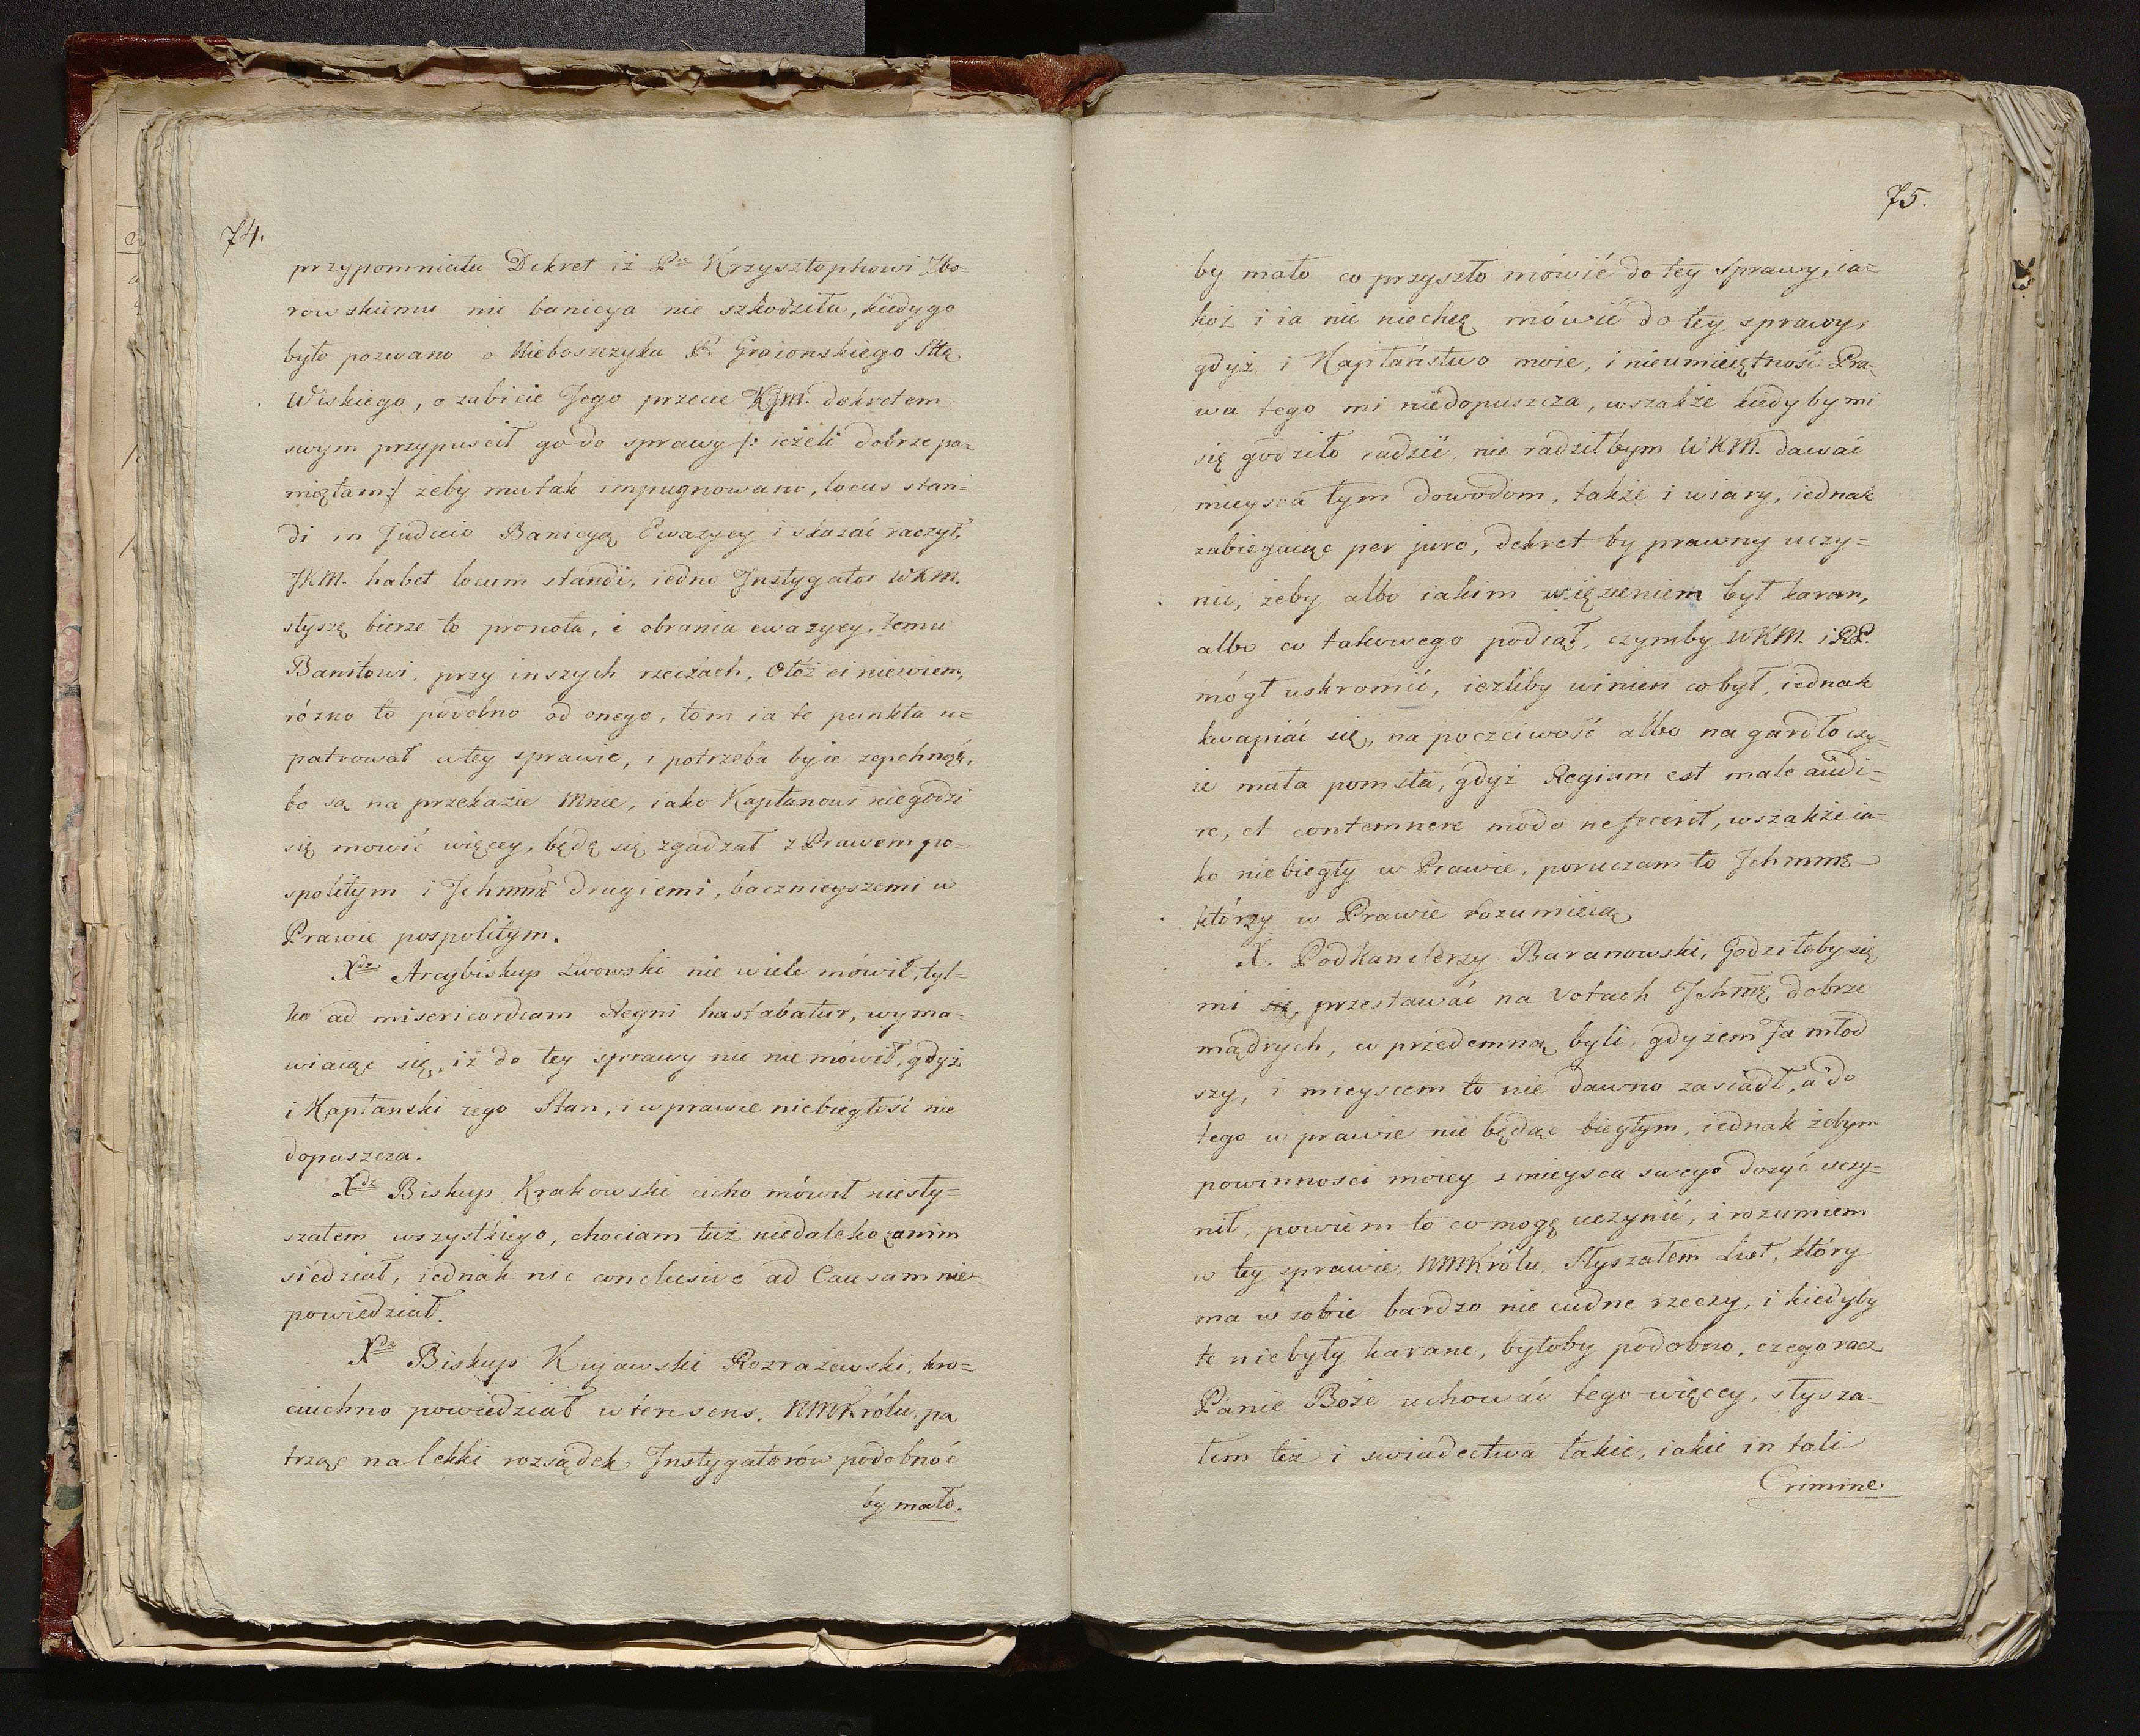 74.
przypomniała Dekret iż P<sup>u</sup> Krzysztophowi Zbo-
rowskiemu nic banicya nie szkodziła, kiedy go
było pozwano o Nieboszczyka P. Graionskiego Sttę
Wiskiego, o zabicie Jego przecie KJM. dekretem
swym przypuscił go do sprawy /: ieżeli dobrze pa-
miętam :/ żeby mu tak impugnowano, locus stan-
di in Judicio Banicyą Ewazycy i skazać raczył,
JKM. habet locum standi, iedno Instygator WKM.
słyszę bierze to pronota, i obrania ewazycy, temu
Banitowi, przy inszych rzeczach, Otóż ci niewiem,
rózno to podobno od onego, tom ia te punkta u-
patrował w tey sprawie, i potrzeba by ie zepchnąć,
bo są na przekazie Mnie, iako Kapłanowi niegodzi
się mowić więcey, będę się zgadzał z Prawem po-
spolitym i Jchmmę drugiemi, bacznieyszemi w
Prawie pospolitym.
Xdz Arcybiskup Lwowski nie wiele mówił, tyl-
ko ad misericordiam Regni hastabatur, wyma-
wiaiąc się, iż do tey sprawy nic nie mówił, gdyż
i Kapłanski iego Stan, i w prawie niebiegłość nie
dopuszcza.
Xdz Biskup Krakowski cicho mówił niesły-
szałem wszystkiego, chociam tuż niedaleko zanim
siedział, iednak nic conclusive ad Causam nie
powiedział.
Xdz Biskup Kujawski Rozrażewski, kro-
ciuchno powiedział w ten sens. NMKrólu, pa
trząc na lekki rozsądek Instygatorów podobnoć
by mało.
75.
by mało co przyszło mówić do tey sprawy, ia-
koż i ia nic niechcę mówić do tey sprawy,
gdyż i Kapłaństwo moie, i nieumieiętność Pra-
wa tego mi niedopuszcza, wszakże kiedyby mi
się godziło radzić, nie radziłbym WKM. dawać
mieysca tym dowodom, także i wiary, iednak
zabiegaiąc per juro, dekret by prawny uczy-
nić, żeby albo iakim więzieniem był karan,
albo co takowego podiął, czymby WKM. i RP.
mógł uskromić, iezliby winien co był, iednak
kwapiać się, na poczciwość albo na gardło czy-
ie mała pomsta, gdyż Regium est male audi-
re, et contemnere modo ne fecerit, wszakże ia-
ko niebiegły w Prawie, poruczam to Jchmmę
którzy w Prawie rozumieią
X. Podkanclerzy Baranowski, Godziłoby się
mi się, przestawać na Votach Jchmę dobrze
mądrych, co przedemną byli, gdyżem Ja młod
szy, i mieyscem to nie dawno zasiadł, a do
tego w prawie nie będąc biegłym, iednak żebym
powinności moiey z mieysca swego dosyć uczy-
nił, powiem to co mogę uczynić, i rozumiem
w tey sprawie, NMKrólu, Słyszałem List, który
ma w sobie bardzo nie cudne rzeczy, i kiedyby
te niebyły karane, byłoby podobno, czego racz
Panie Boże uchować tego więcey, słysza-
łem też i swiadectwa takie, iakie in tali
Crimine